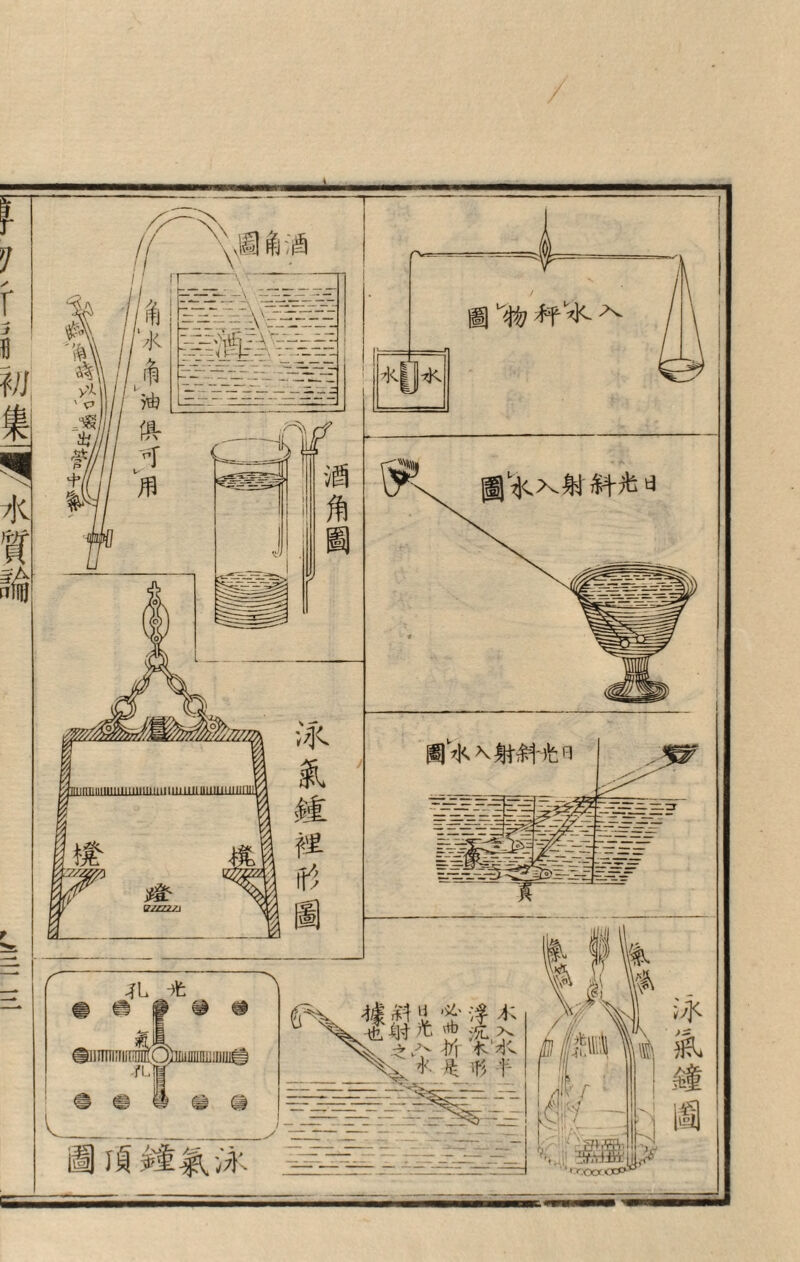 博物新編初集
水質論
入水秤物圖
水
水
日光斜射入水圖
日光斜射入水圖
像
真
泳氣鐘圖
氣筒
氣筒
光孔
木入水半
浮沉木形
必曲折是
日光入水
斜射之
據也
酒角圖
酒
角水角油俱可用
臨角時以口啜出管中氣
酒角圖
泳氣鍾裡形圖
櫈
櫈
蹬
光孔
氣孔
泳氣鐘頂圖